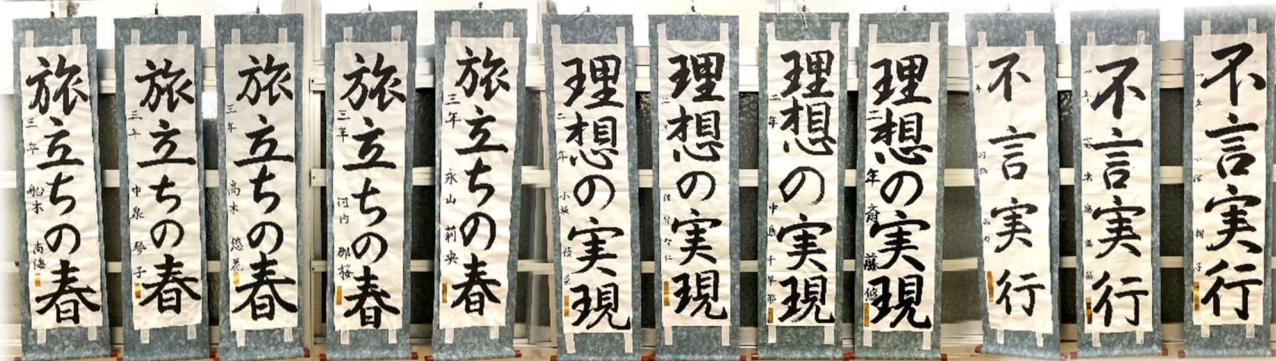 旅立ちの春
三年 船木
旅立ちの春
三年 中泉 琴子
旅立ちの春
三年 高木 悠花
旅立ちの春
三年 河内 那桜
旅立ちの春
三年 永山 莉央
理想の実現
二年 小
理想の実現
理想の実現
二年 中 千
理想の実現
二年 斎藤 悠
不言実行
不言実行
不言実行